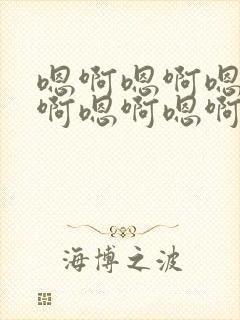 嗯啊嗯啊嗯
啊嗯啊嗯啊
海博之波